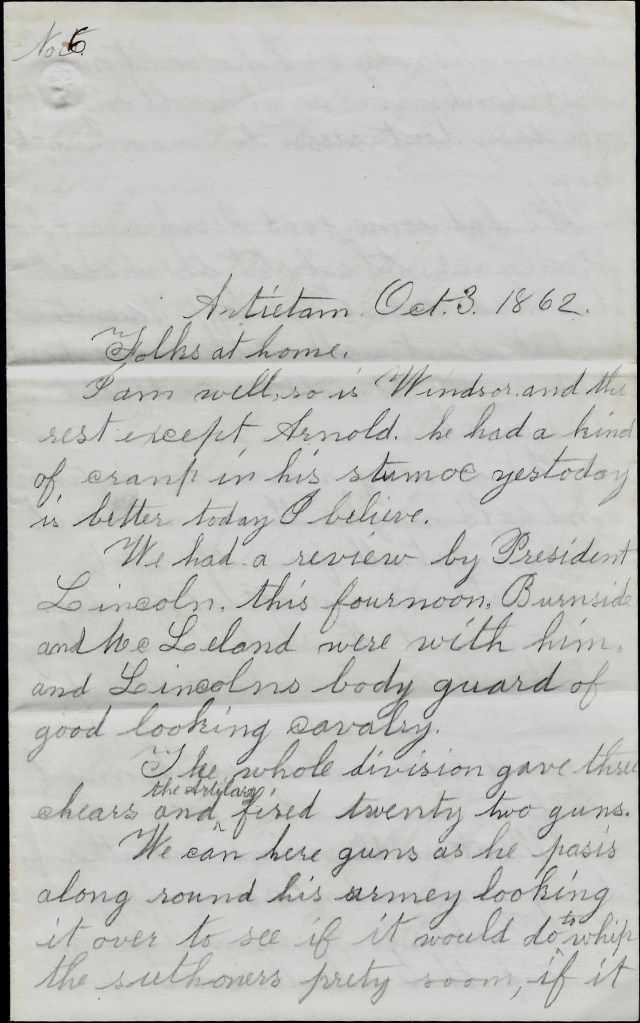 No 6.
Antietam Oct. 3. 1862.
Folks at home.
I am well, so is Windsor. and the
rest except Arnold. he had a kind
of cramp in his stumoc yestoday
is better today I believe.
We had a review by President
Lincoln. this fournoon. Burnside
and Mc Leland were with him.
and Lincolns body guard of
good looking cavalry.
The whole division gave three
the Artilary
chears and fired twenty two guns.
We can here guns as he pasis
along round his armey looking
it over to see if it would do to whip
the suthoners prety soom, if it